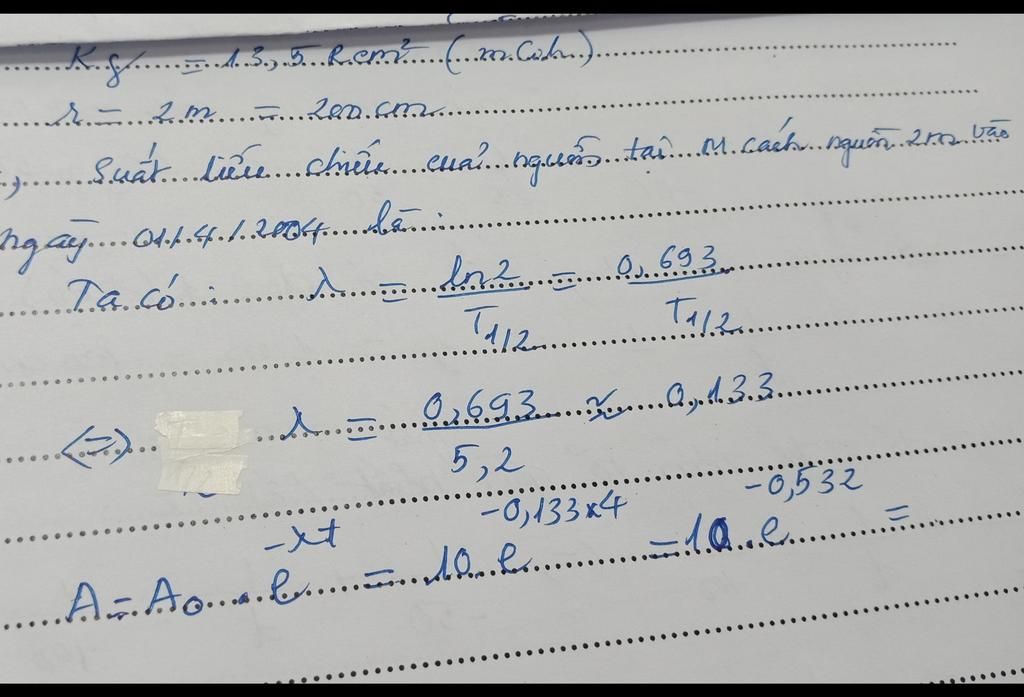 Kγ = 13,5 R.cm² (mCi.h)
r = 2 m = 200 cm
Suất liều chiếu của nguồn tại M cách nguồn 2m vào
ngày 01/4/2004 là :
Ta có : λ = ln2 / T1/2 = 0,693 / T1/2
<=> λ = 0,693 / 5,2 ≈ 0,133
A = A₀ . e^-λt = 10. e^-0,133x4 = 10. e^-0,532 =